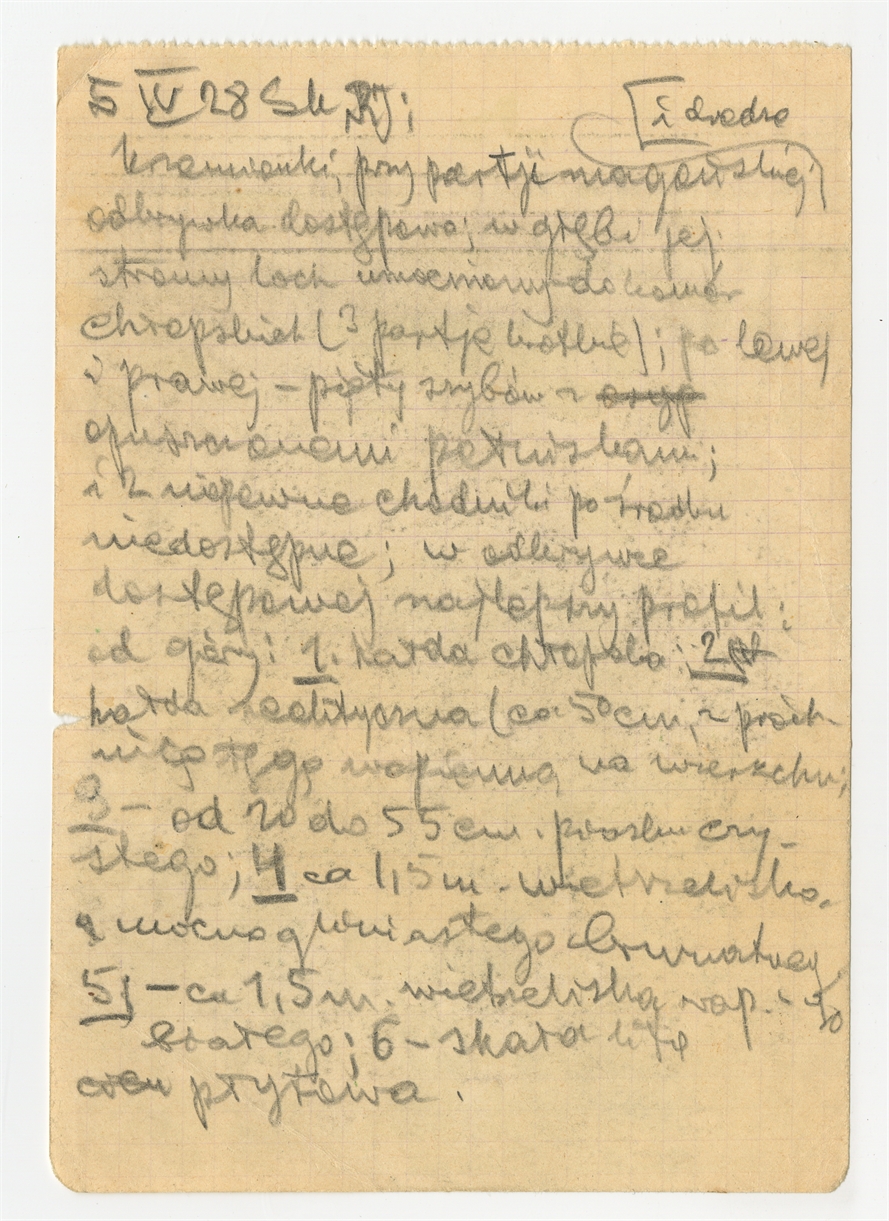 5 IV 28 Sk
i dredze
Krzemionki, przy partji magońskiej
odkrywka dostępowa; w głębi jej
stromy loch umocniony do komór
chłopskich (3 partje krótkie); po lewej
i prawej – pięty szybów z
opuszczonemi pecuiskami;
i 2 niepewne chodniki po środku
niedostępne; w odkrywce
dostępowej najlepszy profil:
od góry: 1. hałda chłopska; 2
hałda neolityczna (ca 50 cm, z próch-
wapienną na wierzchu;
3 – od 20 do 55 cm. piasku czy-
stego; 4 ca 1,5 m. wietrzeliska
z mocno gliniastego brunatnej
5) – ca 1,5 m. wietrzeliska wap.
białego; 6 – skała lita
płytowa.